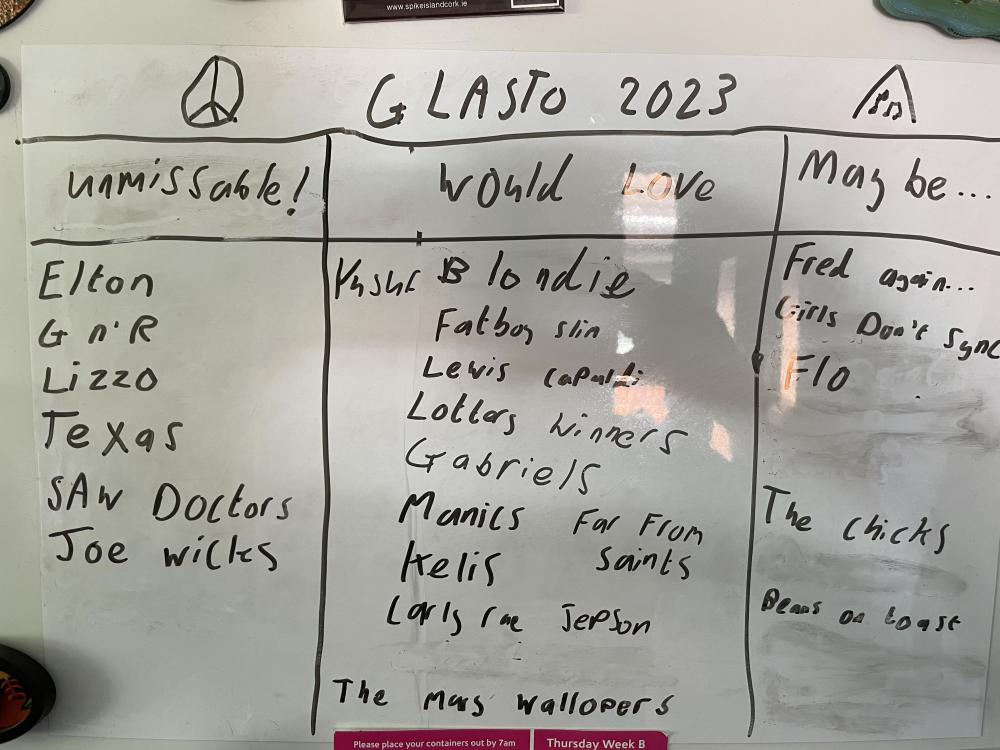 www.spikeislandcork.ie
GLASTO 2023
unmissable!
Elton
G n'R
Lizzo
Texas
SAW DOCtors
Joe wicks
Would LOVE
Blondie
Fatboy slim
Lewis Capaldi
Lottery winners
Gabriels
Manics Far From Saints
Kelis
Carly rae Jepson
The Mary Wallopers
May be...
Fred again...
Girls Don't Sync
Flo
The Chicks
Beans on toast
Please place your containers out by 7am
Thursday Week B